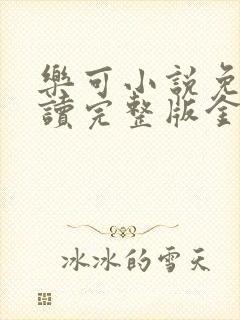 樂可小說免
讀完整版全
冰冰的雪天